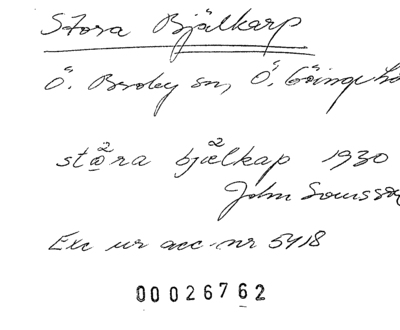 Stora Bjälkarp
Ö. Broby sn, Ö. Göinge hä
stọ²ra bjæ²lkap 1930
John
Exc ur acc. nr 5418
00026762